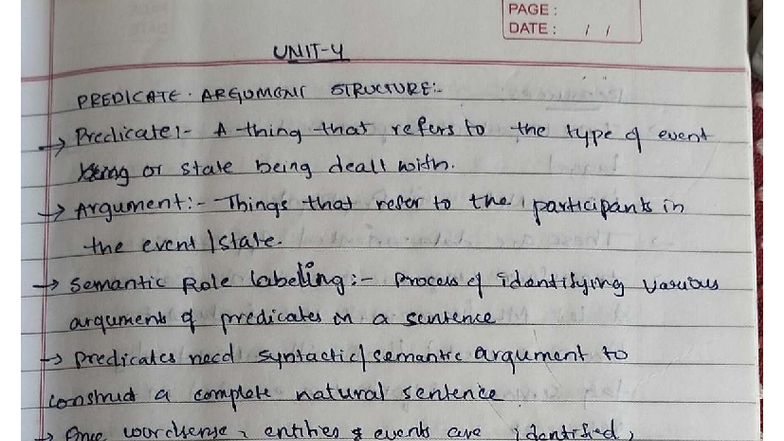 PAGE :
DATE : / /
UNIT-4
PREDICATE - ARGUMENT STRUCTURE:-
→ Predicate:- A thing that refers to the type of event
or state being deall with.
→ Argument:- Things that refer to the participants in
the event/state.
→ Semantic Role labeling:- Process of identifying various
arguments of predicates in a sentence
→ predicates need syntactic/semantic argument to
construct a complete natural sentence.
→ Once wordsense, entities & events are identified,